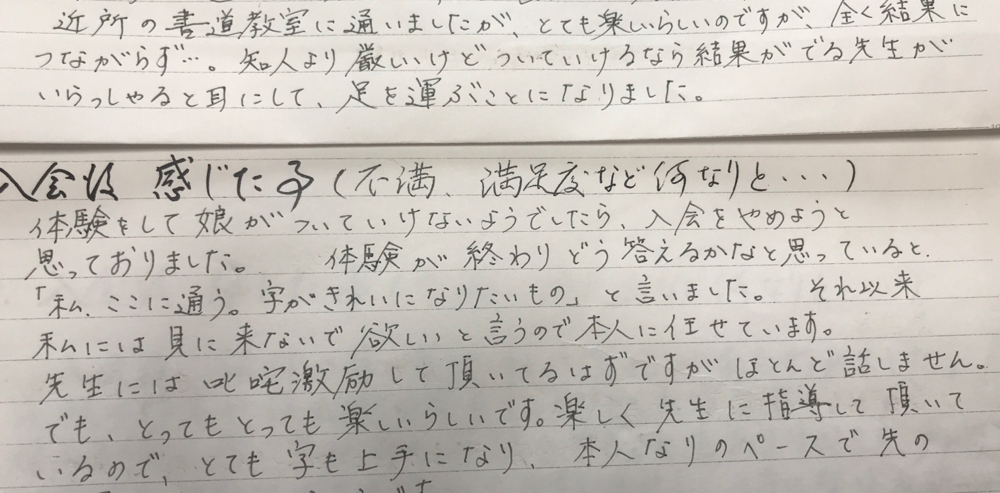 近所の書道教室に通いましたが、とても楽しいらしいのですが、全く結果に
つながらず…。知人より厳しいけどついていけるなら結果がでる先生が
いらっしゃると耳にして、足を運ぶことになりました。
入会后 感じた事(不満、満足度など何なりと・・・)
体験をして娘がついていけないようでしたら、入会をやめようと
思っておりました。 体験が終わりどう答えるかなと思っていると、
「私、ここに通う。字がきれいになりたいもの」と言いました。 それ以来
私には見に来ないで欲しいと言うので本人に任せています。
先生には叱咤激励して頂いてるはずですがほとんど話しません。
でも、とってもとっても楽しいらしいです。楽しく先生に指導して頂いて
いるので、とても字も上手になり、本人なりのペースで先の